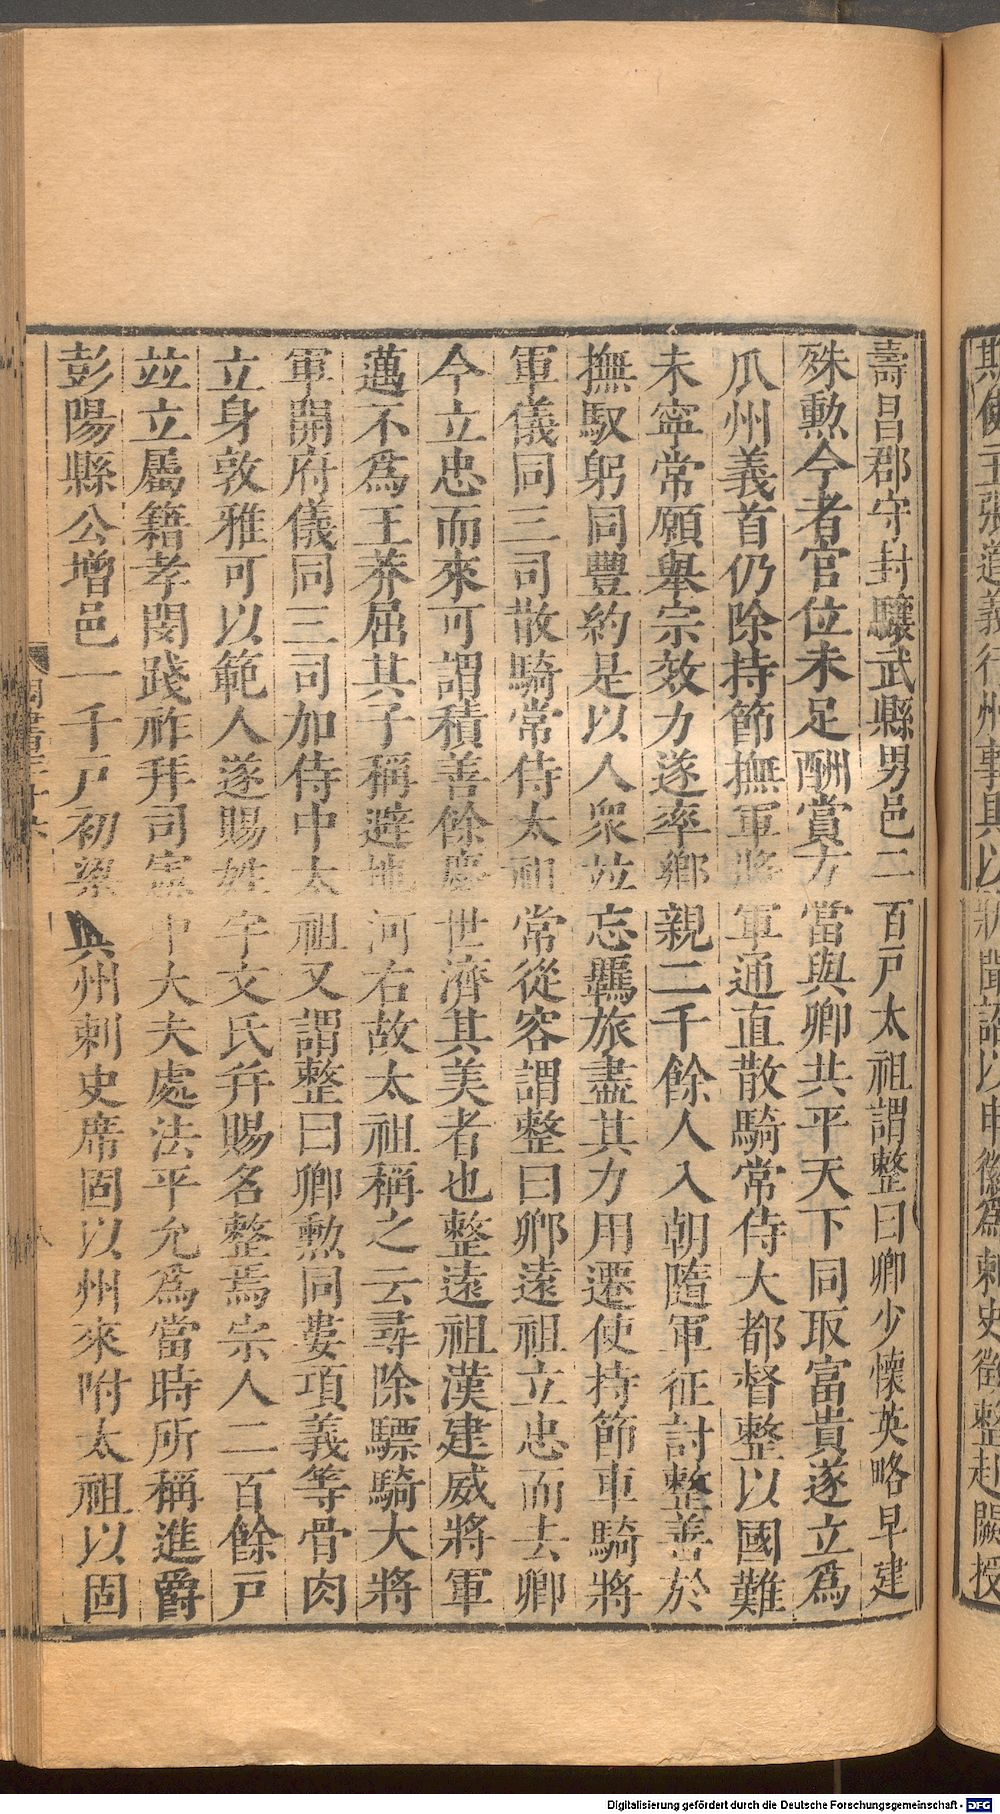 斯使主張道義行州事具以狀聞詔以申徽爲刺史徵整赴闕授
壽昌郡守封驤武縣男邑二百戸太祖謂整曰卿少懷英略早建
殊勲今者官位未足酬賞方當與卿共平天下同取富貴遂立爲
瓜州義首仍除持節撫軍將軍通直散騎常侍大都督整以國難
未寧常願舉宗效力遂率鄉親二千餘人入朝隨軍征討整善於
撫馭躬同豐約是以人衆竝忘羈旅盡其力用遷使持節車騎將
軍儀同三司散騎常侍太祖常從容謂整曰卿遠祖立忠而去卿
今立忠而來可謂積善餘慶世濟其美者也整遠祖漢建威將軍
邁不爲王莽屈其子稱避地河右故太祖稱之云尋除驃騎大將
軍開府儀同三司加侍中太祖又謂整曰卿勲同婁項義等骨肉
立身敦雅可以範人遂賜姓宇文氏幷賜名整焉宗人二百餘戸
竝立屬籍孝閔踐祚拜司憲中大夫處法平允爲當時所稱進爵
彭陽縣公增邑一千戸初梁興州刺史席固以州來附太祖以固
Digitalisierung gefördert durch die Deutsche Forschungsgemeinschaft - DFG